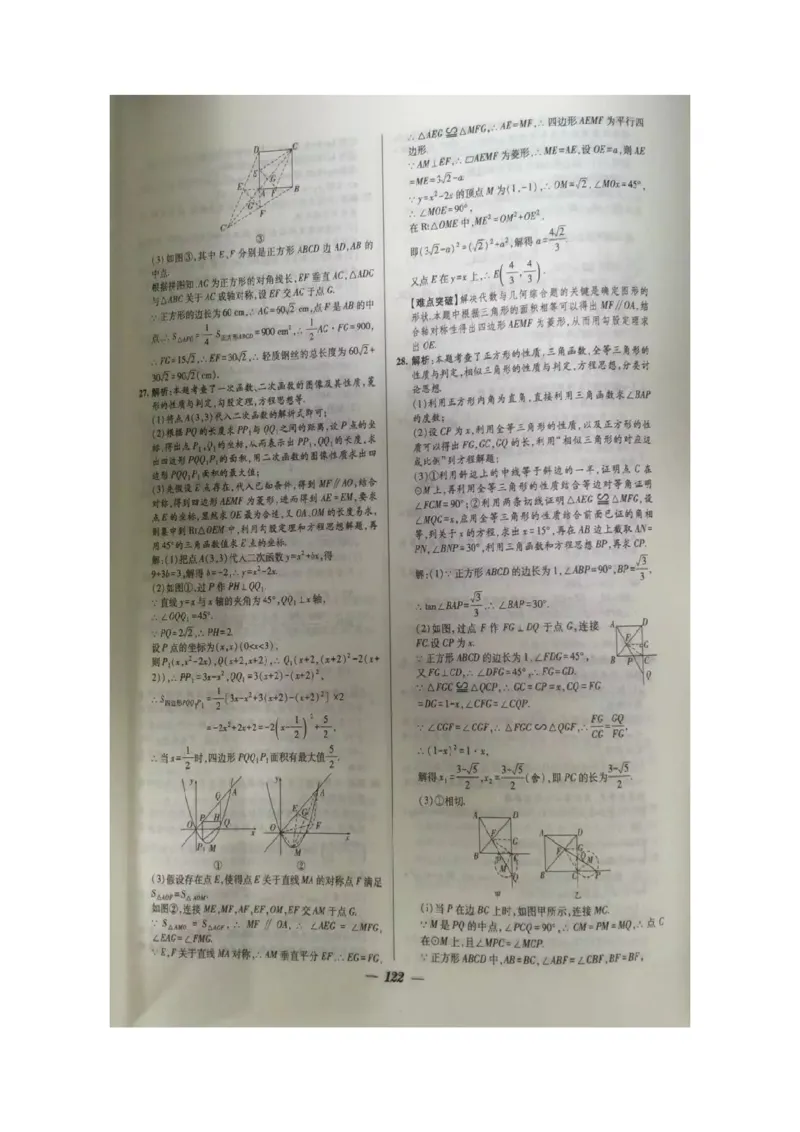 D
C
E
G
A
F
B
E
G
F
C
③
(3)如图③,其中E,F分别是正方形ABCD边AD,AB的
中点.
根据拼图知.AC为正方形的对角线长,EF垂直AC,△ADC
与△ABC关于AC成轴对称,设EF交AC于点G.
∵正方形的边长为60 cm,∴AC=60√2 cm,点F是AB的中
点,∴S△AFG=1/4 S正方形ABCD=900 cm²,∴1/2 AG·FG=900,
∴FG=15√2,∴EF=30√2,∴轻质钢丝的总长度为60√2+
30√2=90√2(cm).
27.解析:本题考查了一次函数、二次函数的图像及其性质,菱
形的性质与判定,勾股定理,方程思想等.
(1)将点A(3,3)代入二次函数的解析式即可;
(2)根据PQ的长度求PP₁与QQ₁之间的距离,设P点的坐
标.得出点P₁,Q₁的坐标,从而表示出PP₁、QQ₁的长度,求
出四边形PQQ₁P₁的面积,用二次函数的图像性质求出四
边形PQQ₁P₁面积的最大值;
(3)先假设E点存在,代入已知条件,得到MF∥AO,结合
对称,得到四边形AEMF为菱形.进而得到AE=EM,要求
点E的坐标,显然求OE最为合适,又OA、OM的长度易求,
则集中到Rt△OEM中,利用勾股定理和方程思想解题,再
用45°的三角函数值求E点的坐标.
解:(1)把点A(3,3)代入二次函数y=x²+bx,得
9+3b=3,解得b=-2,∴y=x²-2x.
(2)如图①,过P作PH⊥QQ₁
∵直线y=x与x轴的夹角为45°,QQ₁⊥x轴,
∴∠OQQ₁=45°.
∵PQ=2√2,∴PH=2.
设P点的坐标为(x,x)(0<x<3),
则P₁(x,x²-2x),Q(x+2,x+2),∴Q₁(x+2,(x+2)²-2(x+
2)),∴PP₁=3x-x²,QQ₁=3(x+2)-(x+2)²,
∴S四边形PQQ₁P₁=1/2[3x-x²+3(x+2)-(x+2)²]×2
=-2x²+2x+2=-2(x-1/2)²+5/2,
∴当x=1/2时,四边形PQQ₁P₁面积有最大值5/2.
① ②
(3)假设存在点E,使得点E关于直线MA的对称点F满足
S△AOF=S△AOM.
如图②,连接ME,MF,AF,EF,OM,EF交AM于点G.
∵S△AMO=S△AOF,∴MF∥OA,∴∠AEG=∠MFG,
∠EAG=∠FMG.
∵E,F关于直线MA对称,∴AM垂直平分EF.∴EG=FG,
∴△AEG≌△MFG,∴AE=MF,∴四边形AEMF为平行四
边形.
∵AM⊥EF,∴▱AEMF为菱形,∴ME=AE,设OE=a,则AE
=ME=3√2-a
∵y=x²-2x的顶点M为(1,-1),∴OM=√2,∠MOx=45°,
∴∠MOE=90°,
在Rt△OME中,ME²=OM²+OE².
即(3√2-a)²=(√2)²+a²,解得a=4√2/3.
又点E在y=x上,∴E(4/3,4/3).
【难点突破】解决代数与几何综合题的关键是确定图形的
形状.本题中根据三角形的面积相等可以得出MF∥OA,结
合轴对称性得出四边形AEMF为菱形,从而用勾股定理求
出OE.
28.解析:本题考查了正方形的性质,三角函数,全等三角形的
性质与判定,相似三角形的性质与判定,方程思想,分类讨
论思想.
(1)利用正方形内角为直角,直接利用三角函数求∠BAP
的度数;
(2)设CP为x,利用全等三角形的性质,以及正方形的性
质可以得出FG,GC,GQ的长,利用“相似三角形的对应边
成比例”列方程解题;
(3)①利用斜边上的中线等于斜边的一半,证明点C在
⊙M上,再利用全等三角形的性质结合等边对等角证明
∠FCM=90°;②利用两条切线证明△AEG≌△MFG,设
∠MQC=x,应用全等三角形的性质结合前面已证的角相
等,列关于x的方程,求出x=15°,再在AB边上截取AN=
PN,∠BNP=30°,利用三角函数和方程思想BP,再求CP.
解:(1)∵正方形ABCD的边长为1,∠ABP=90°,BP=√3/3,
∴tan∠BAP=√3/3,∴∠BAP=30°.
(2)如图,过点F作FG⊥DQ于点G,连接
FC.设CP为x.
∵正方形ABCD的边长为1.∠FDG=45°,
又FG⊥CD,∴∠DFG=45°,∴FG=GD.
∵△FGC≌△QCP,∴GC=CP=x,CQ=FG
=DG=1-x,∠CFG=∠CQP.
∵∠CGF=∠CGF,∴△FGC∽△QGF,∴FG/CG=GQ/FG,
∴(1-x)²=1·x,
解得x₁=3-√5/2,x₂=3-√5/2(舍),即PC的长为3-√5/2.
(3)①相切.
甲 乙
(i)当P在边BC上时,如图甲所示,连接MC.
∵M是PQ的中点,∠PCQ=90°,∴CM=PM=MQ,∴点C
在⊙M上,且∠MPC=∠MCP.
∵正方形ABCD中,AB=BC,∠ABF=∠CBF,BF=BF,
— 122 —